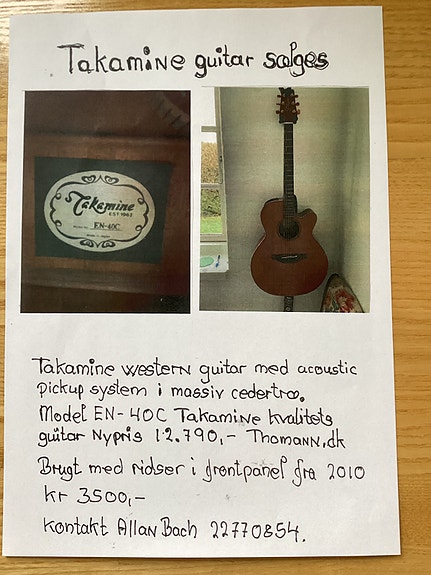 Takamine guitar sælges
Takamine
EST. 1962
EN-40C
Takamine western guitar med acoustic
pickup system i massiv cedertræ.
Model EN-40C Takamine kvalitets
guitar Nypris 12.790,- Thomann.dk
Brugt med ridser i frontpanel fra 2010
kr 3500,-
Kontakt Allan Bach 22770854.